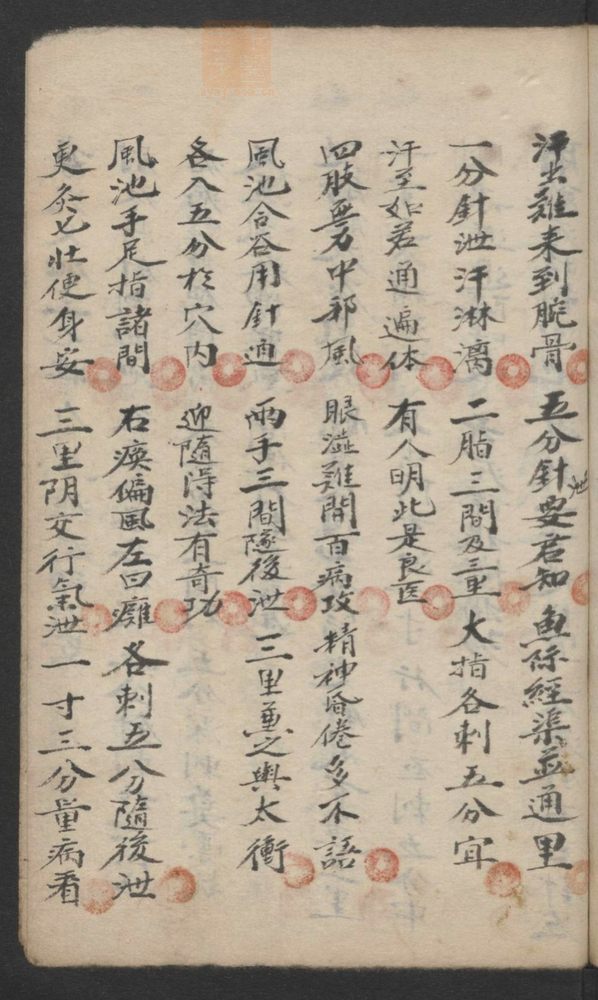 汗出難来到腕骨 五分針泄要君知 魚际經渠並通里
一分針泄汗淋漓 二脂三間及三里 大指各刺五分宜
汗至如若通遍体 有人明此是良医
四肢無力中邪風 眼澁難開百病攻 精神昏倦多不語
風池合谷用針通 兩手三間隨後泄 三里兼之與太衝
各入五分於穴内 迎隨淂法有奇功
風池手足指諸間 右痪偏風左曰癱 各刺五分隨後泄
更灸七壮便身安 三里阴交行氣泄 一寸三分量病看